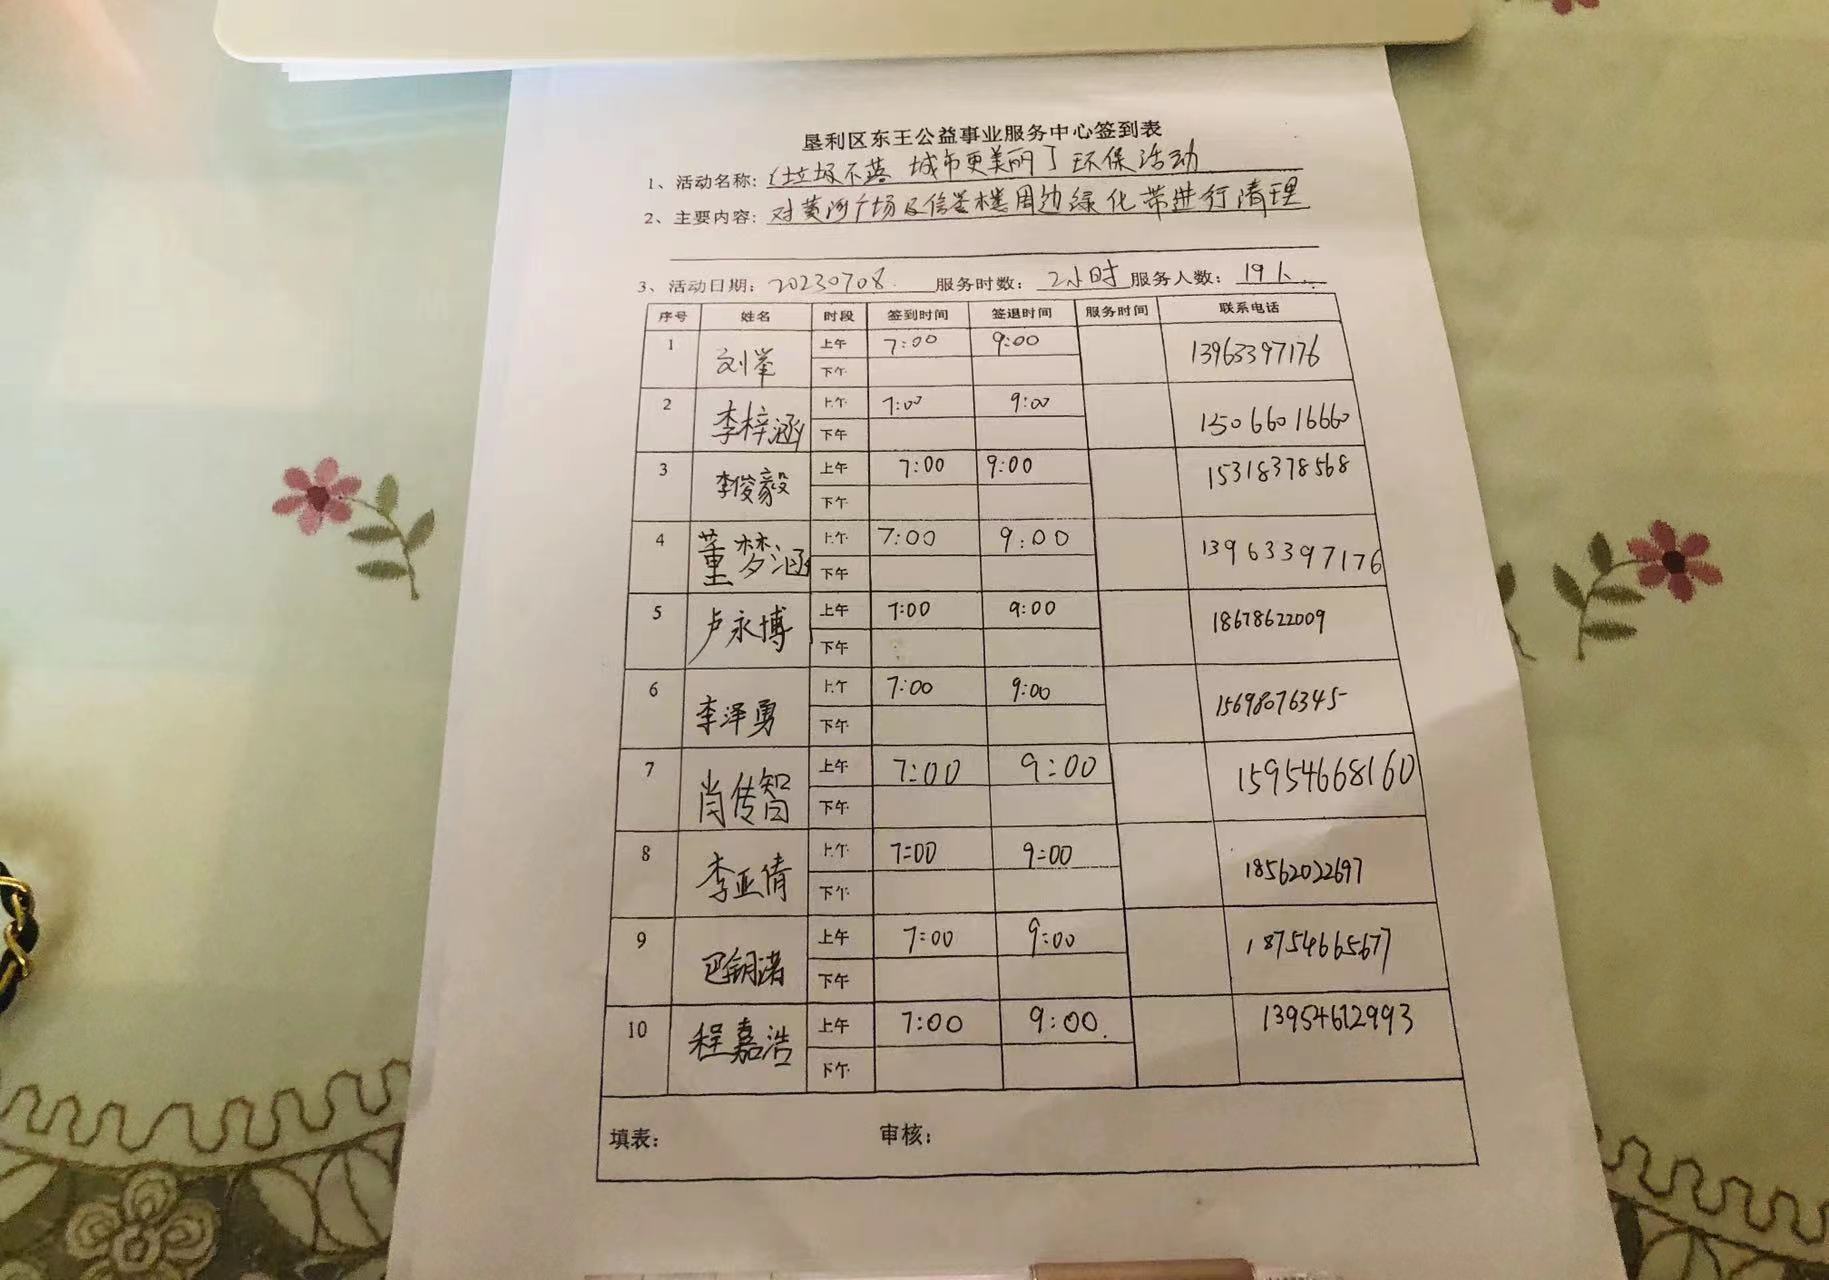 垦利区东王公益事业服务中心签到表
1、活动名称：《垃圾不落 城市更美丽》环保活动
2、主要内容：对黄河广场及信誉楼周边绿化带进行清理
3、活动日期：20230708. 服务时数：2小时 服务人数：19人
序号 姓名 时段 签到时间 签退时间 服务时间 联系电话
1 刘峯 上午 7:00 9:00 13963397176
下午
2 李梓涵 上午 7:00 9:00 15066016660
下午
3 李俊毅 上午 7:00 9:00 15318378568
下午
4 董梦涵 上午 7:00 9:00 13963397176
下午
5 卢永博 上午 7:00 9:00 18678622009
下午
6 李泽勇 上午 7:00 9:00 15698076345
下午
7 肖传智 上午 7:00 9:00 15954668160
下午
8 李亚倩 上午 7:00 9:00 18562022697
下午
9 巴钥诺 上午 7:00 9:00 18754665677
下午
10 程嘉浩 上午 7:00 9:00. 13954612993
下午
填表： 审核：